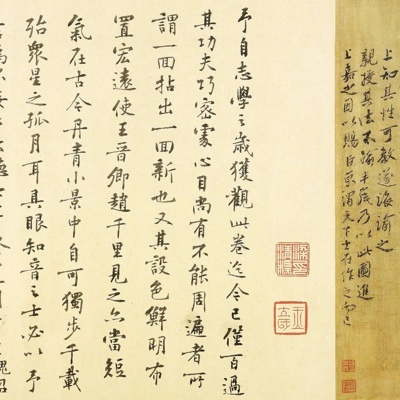 上知其性可教遂誨諭之
親授其法不踰半歲乃以此圖進
上嘉之因以賜臣京謂天下士在作之而已
予自志學之歲獲觀此卷迄今已僅百過
其功夫巧密處心目尚有不能周遍者所
謂一回拈出一回新也又其設色鮮明布
置宏遠使王晉卿趙千里見之亦當短
氣在古今丹青小景中自可獨步千載
殆眾星之孤月耳具眼知音之士必以予